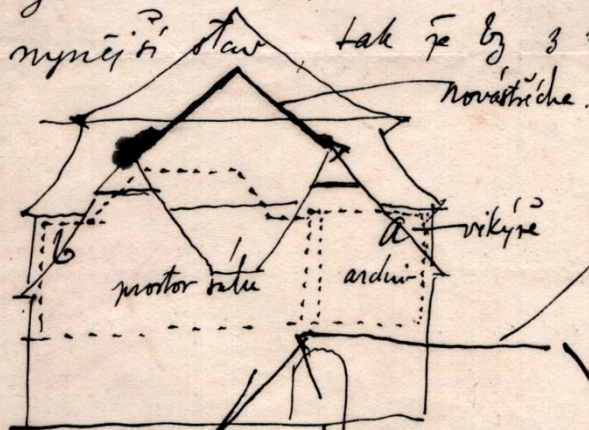 nynější stav   tak je by z
nová střecha.
b
a
vikýře
prostor sálu
archiv